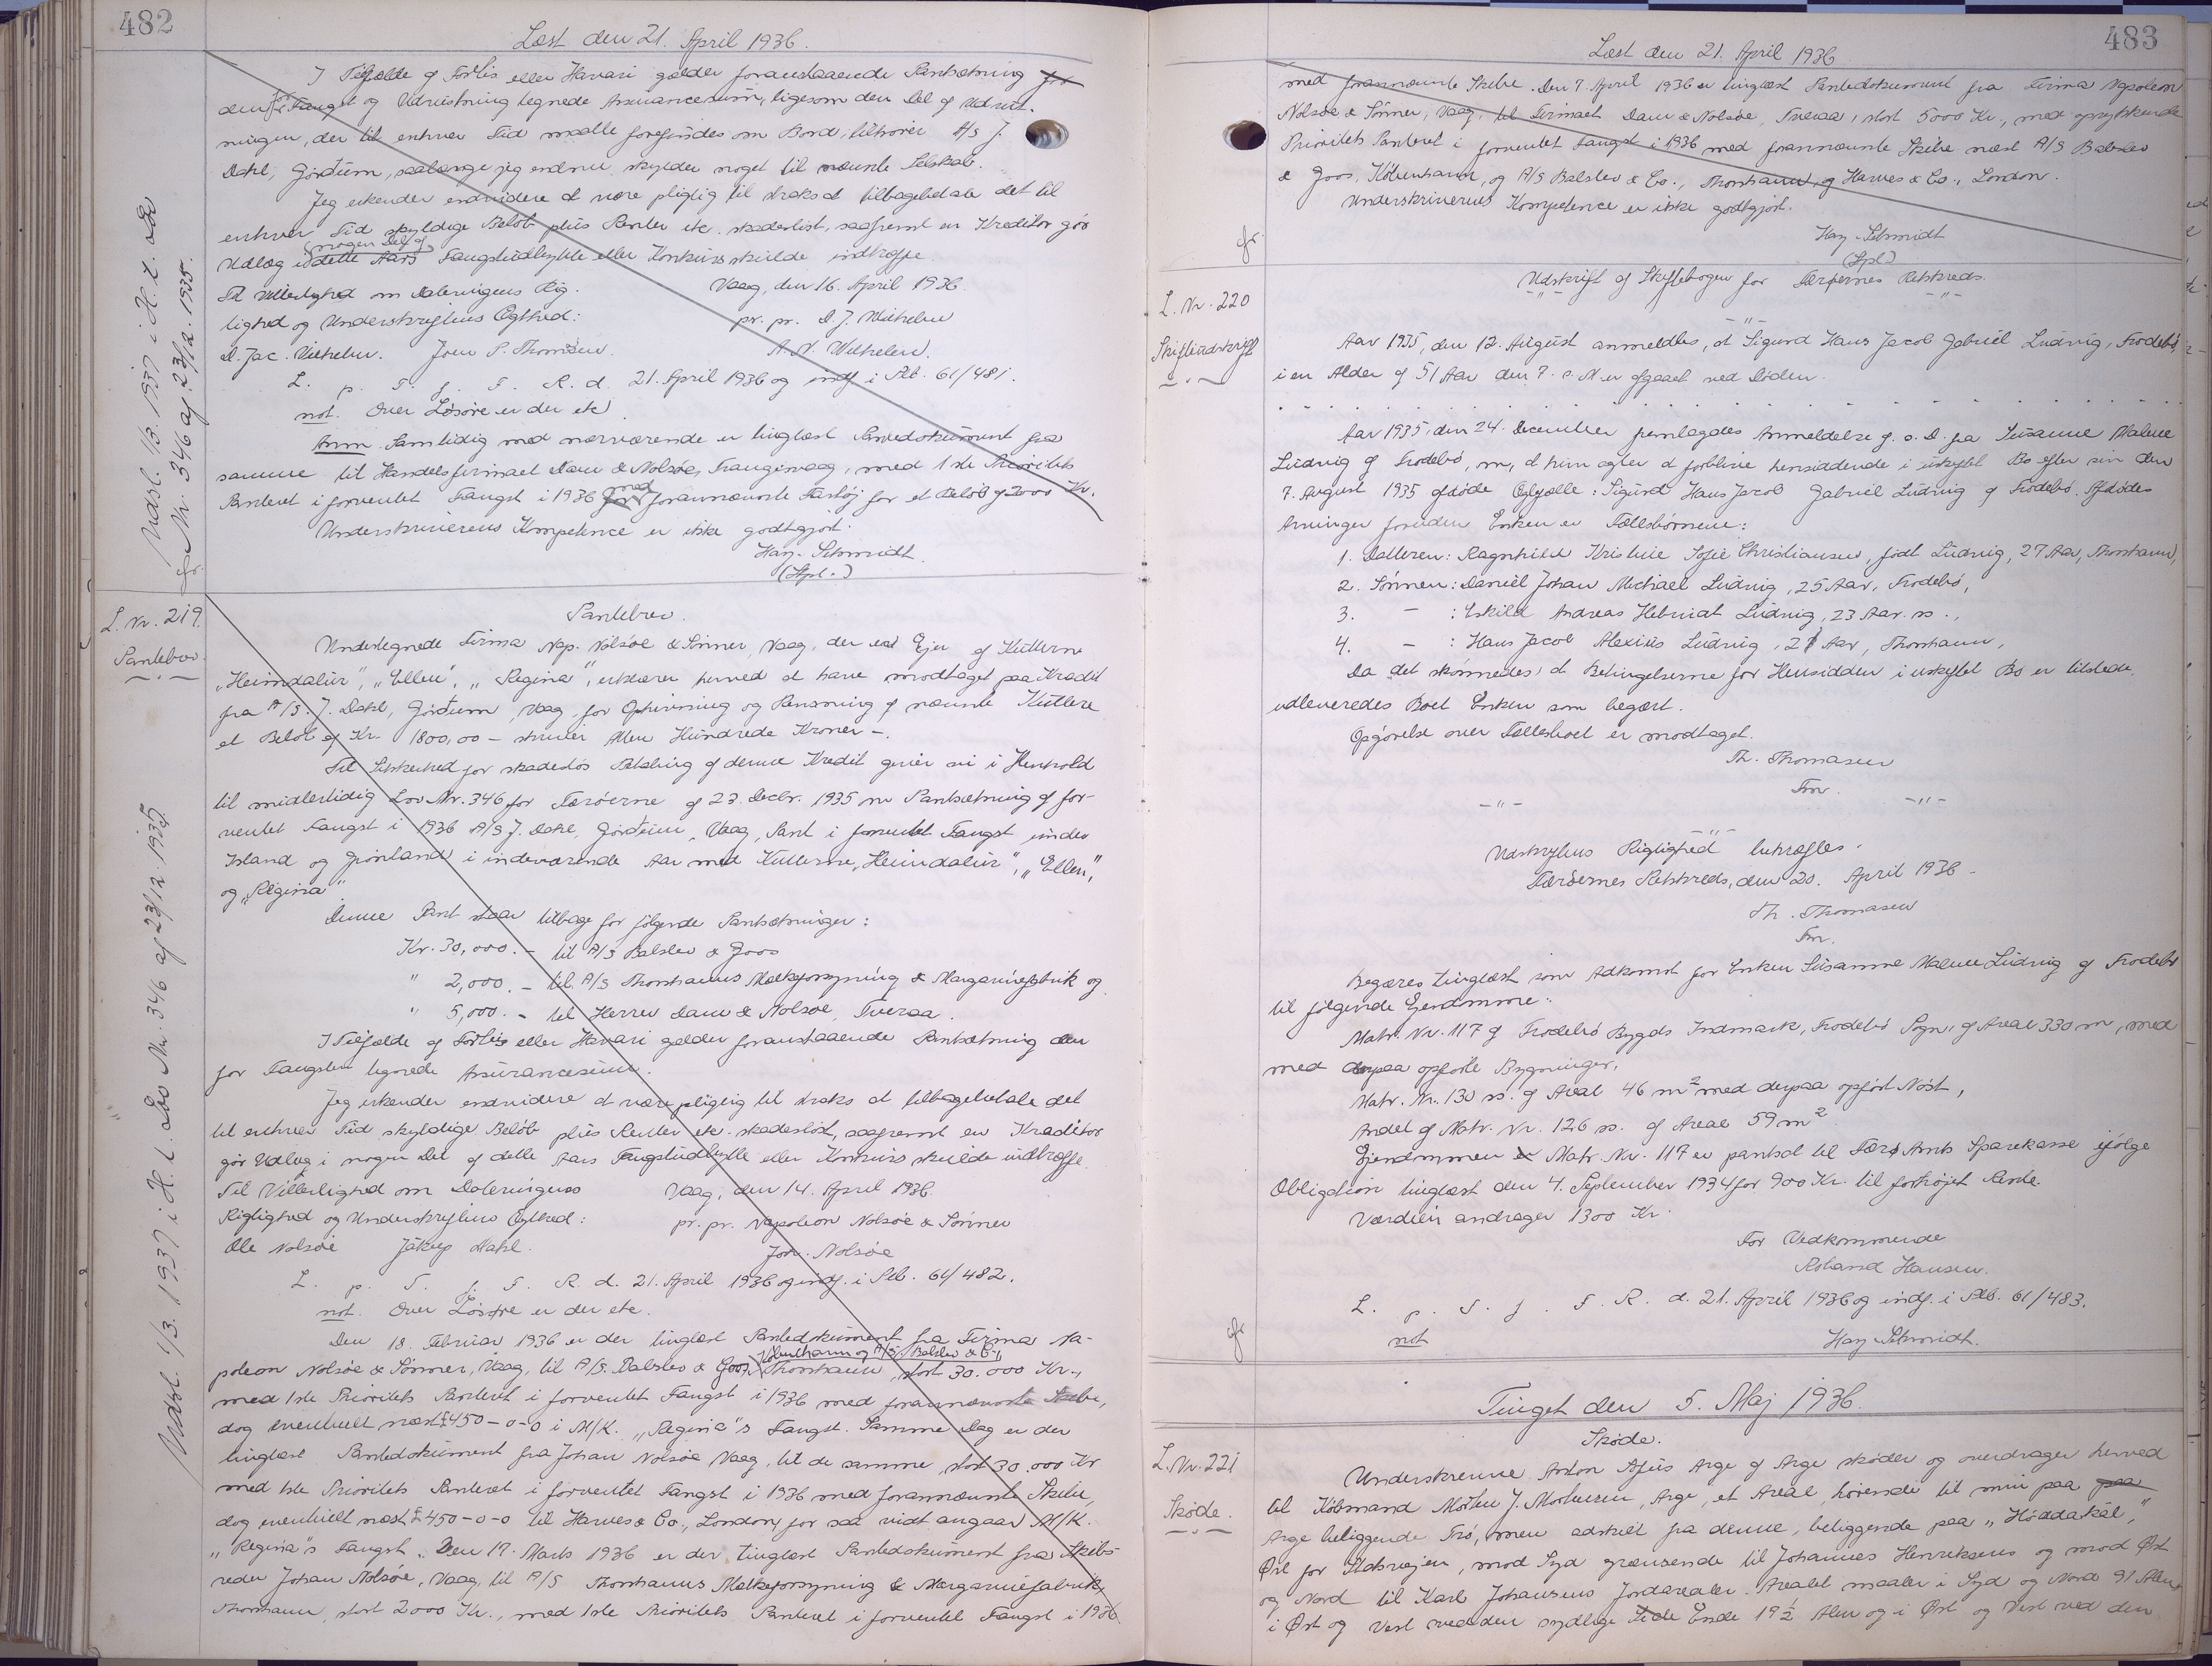 482
Læst den 21. April 1936.
I Tilfælde af Forlis eller Havari gælder foranstaaende Pantsætning for
den for Fangst og Udrustning tegnede Assurancesum, ligesom den Del af Udrust-
ningen, der til enhver Tid maatte forefindes om Bord, tilhører A/S J.
Dahl, Gørdum, saalænge jeg endnu skylder noget til nævnte Selskab.
Jeg erkender endvidere at være pligtig til straks at tilbagebetale det til
enhver Tid skyldige Beløb plus Renter etc. skadesløst, saafremt en Kreditor gør
Udlæg i nogen Del af dette Aars Fangstudbytte eller Konkurs skulde indtræffe.
Til Vitterlighed om Dateringens Rig-
Vaag, den 16. April 1936.
lighed og Underskriftens Ægthed:
pr. pr. D. J. Wilhelm
D. Jac. Wilhelm. Joen P. Thomsen.
A. N. Wilhelm.
L. p. T. f. F. R. d. 21. April 1936 og indf. i Ptb. 61/481.
not. Over Løsøre er der etc.
Anm. Samtidig med nærværende er tinglæst Pantedokument fra
samme til Handelsfirmaet Dam & Nolsøe, Trangisvaag, med 1ste Prioritets
Panteret i forventet Fangst i 1936 for med forannævnte Fartøj for et Beløb af 2000 Kr.
Underskriverens Kompetence er ikke godtgjort.
Hay-Schmidt
(Spl.)
Udsl. 1/3. 1937 i H. t. Lov
Nr. 346 af 23/12. 1935.
fr.
L. Nr. 219.
Pantebrev.
Pantebrev.
Undertegnede Firma Nap. Nolsøe & Sønner, Vaag, der er Ejer af Kutterne
„Heimdalur”, „Ellen”, „Regina”, erklærer herved at have modtaget paa Kredit
fra A/S. J. Dahl, Gørdum, Vaag, for Ophivning og Rensning af nævnte Kuttere
et Beløb af Kr. 1800,00 – skriver Atten Hundrede Kroner –.
Til Sikkerhed for skadesløs Betaling af denne Kredit giver vi i Henhold
til midlertidig Lov Nr. 346 for Færøerne af 23. Decbr. 1935 om Pantsætning af for-
ventet Fangst i 1936 A/S J. Dahl, Gørdum, Vaag, Pant i forventet Fangst under
Island og Grønland i indeværende Aar med Kutterne „Heimdalur”, „Ellen”,
og „Regina”.
Denne Pant staar tilbage for følgende Pantsætninger:
Kr. 30,000. – til A/S Balslev & Goos
" 2,000. – til A/S Thorshavns Mælkeforsyning & Margarinefabrik og
" 5,000. – til Herrer Dam & Nolsøe, Tveraa.
I Tilfælde af Forlis eller Havari gælder foranstaaende Pantsætning den
for Fangsten tegnede Assurancesum.
Jeg erkender endvidere at være pligtig til straks at tilbagebetale det
til enhver Tid skyldige Beløb plus Renter etc. skadesløst, saafremt en Kreditor
gør Udlæg i nogen Del af dette Aars Fangstudbytte eller Konkurs skulde indtræffe.
Til Vitterlighed om Dateringens
Vaag, den 14. April 1936.
Rigtighed og Underskriftens Ægthed:
pr. pr. Napoleon Nolsøe & Sønner
Ole Nolsøe Jákup Dahl.
Joh. Nolsøe
L. p. T. f. F. R. d. 21. April 1936 og indf. i Ptb. 61/482.
not. Over Løsøre er der etc.
Den 18. Februar 1936 er der tinglæst Pantedokument fra Firma Na-
poleon Nolsøe & Sønner, Vaag, til A/S. Balslev & Goos, København og A/S. Balslev & Co., Thorshavn, stort 30.000 Kr.,
med 1ste Prioritets Panteret i forventet Fangst i 1936 med forannævnte Skibe,
dog eventuelt næst £450-0-0 i M/K. „Regina”s Fangst. Samme Dag er der
tinglæst Pantedokument fra Johan Nolsøe Vaag, til de samme, stort 30.000 Kr
med 1ste Prioritets Panteret i forventet Fangst i 1936 med forannævnte Skibe,
dog eventuelt næst £450-0-0 til Harves & Co., London, for saa vidt angaar M/K.
„Regina”s Fangst. Den 17. Marts 1936 er der tinglæst Pantedokument fra Skibs-
reder Johan Nolsøe, Vaag, til A/S Thorshavns Mælkeforsyning & Margarinefabrik,
Thorshavn, stort 2000 Kr., med 1ste Prioritets Panteret i forventet Fangst i 1936
Udsl. 1/3. 1937 i H. t. Lov Nr. 346 af 23/12 1935.
483
Læst den 21. April 1936
med forannævnte Skibe. Den 7. April 1936 er tinglæst Pantedokument fra Firma Napoleon
Nolsøe & Sønner, Vaag, til Firmaet Dam & Nolsøe, Tveraa, stort 5000 Kr., med oprykkende
Prioritets Panteret i forventet Fangst i 1936 med forannævnte Skibe næst A/S Balslev
& Goos, København, og A/S Balslev & Co., Thorshavn, og Harves & Co., London.
Underskriverens Kompetence er ikke godtgjort.
Hay-Schmidt
(Spl.)
fr.
L. Nr. 220
Skifteudskrift
Udskrift af Skiftebogen for Færøernes Retskreds.
-"-
Aar 1935, den 12. August anmeldtes, at Sigurd Hans Jacob Gabriel Ludvig, Frodebø,
i en Alder af 51 Aar den 7. s. M. er afgaaet ved Døden.
. . . . . . . . . . . . . . . .
Aar 1935, den 24. December fremlagdes Anmeldelse g. o. D. fra Susanne Malene
Ludvig af Frodebø, om, at hun agter at forblive hensiddende i uskiftet Bo efter sin den
7. August 1935 afdøde Ægtefælle: Sigurd Hans Jacob Gabriel Ludvig af Frodebø. Afdødes
Arvinger foruden Enken er Fællesbørnene:
1. Datteren: Ragnhild Kristine Sofie Christiansen, født Ludvig, 27 Aar, Thorshavn,
2. Sønnen: Daniel Johan Michael Ludvig, 25 Aar, Frodebø,
3. – : Eskild Andreas Hebniat Ludvig, 23 Aar. ss.,
4. – : Hans Jacob Alexius Ludvig, 21 Aar, Thorshavn,
Da det skønnedes, at Betingelserne for Hensidden i uskiftet Bo er tilstede,
udleveredes Boet Enken som begært.
Opgørelse over Fællesboet er modtaget.
Th. Thomasen
Fm.
-"- -"-
-"-
Udskriftens Rigtighed bekræftes.
Færøernes Retskreds, den 20. April 1936.
Th. Thomasen
Fm.
Begæres tinglæst som Adkomst for Enken Susanne Malene Ludvig af Frodebø
til følgende Ejendomme:
Matr. Nr. 117 af Frodebø Bygds Indmark, Frodebø Sogn, af Areal 330 m, med
med derpaa opførte Bygninger,
Matr. Nr. 130 ss. af Areal 46 m² med derpaa opført Nøst,
Andel af Matr. Nr. 126 ss. af Areal 59 m²
Ejendommen Matr. Nr. 117 er pantsat til Færø Amts Sparekasse ifølge
Obligation tinglæst den 4. September 1934 for 900 Kr. til forhøjet Rente.
Værdien andrager 1300 Kr.
For Vedkommende
Roland Hansen.
L. p. T. f. F. R. d. 21. April 1936 og indf. i Ptb. 61/483.
not
Hay-Schmidt.
fr
Tinget den 5. Maj 1936.
L. Nr. 221
Skøde.
Skøde.
Underskrevne Anton Arge af Arge skøder og overdrager herved
til Købmand Morten J. Mortensen, Arge, et Areal, hørende til min paa paa
Arge beliggende Trø, men adskilt fra denne, beliggende paa
Øst for Udsvejen, mod Syd grænsende til Johannes Henriksens og mod Øst
og Nord til Karl Johansens Jordarealer. Arealet maaler i Syd og Nord 91 Alen,
i Øst og Vest ved den sydlige Side Ende 19½ Alen og i Øst og Vest ved den